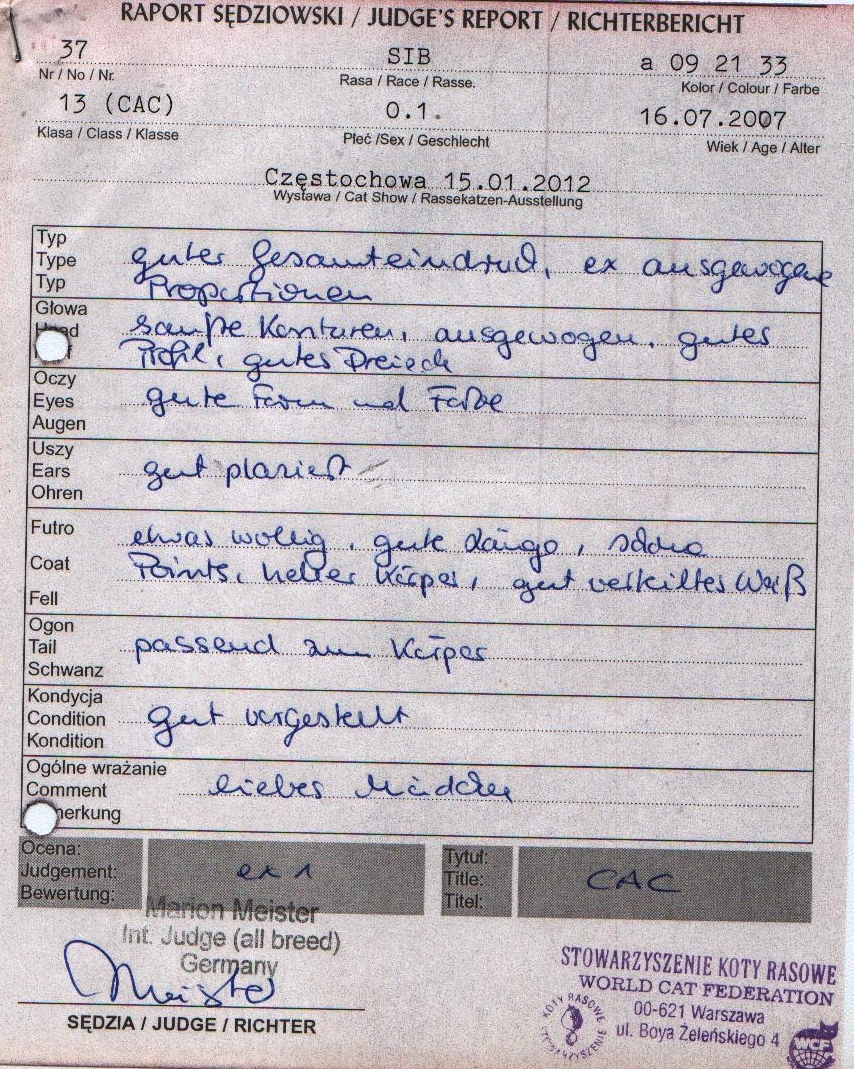 RAPORT SĘDZIOWSKI / JUDGE'S REPORT / RICHTERBERICHT
37 SIB a 09 21 33
Nr / No / Nr. Rasa / Race / Rasse. Kolor / Colour / Farbe
13 (CAC) 0.1. 16.07.2007
Klasa / Class / Klasse Płeć /Sex / Geschlecht Wiek / Age / Alter
Częstochowa 15.01.2012
Wystawa / Cat Show / Rassekatzen-Ausstellung
Typ
Type guter Gesamteindruck, ex ausgewogene
Typ Proportionen
Głowa
Head sanfte Konturen, ausgewogen, gutes
Profil, gutes Dreieck
Oczy
Eyes gute Form und Farbe
Augen
Uszy
Ears gut plaziert
Ohren
Futro etwas wollig, gute Länge, schöne
Coat Points, heller Körper, gut verteiltes Weiß
Fell
Ogon
Tail passend zum Körper
Schwanz
Kondycja
Condition gut vorgestellt
Kondition
Ogólne wrażanie
Comment liebes Mädchen
merkung
Ocena: Tytuł:
Judgement: ex 1 Title: CAC
Bewertung: Titel:
Marion Meister
Int. Judge (all breed)
Germany
Meister
SĘDZIA / JUDGE / RICHTER
STOWARZYSZENIE KOTY RASOWE
WORLD CAT FEDERATION
00-621 Warszawa
ul. Boya Żeleńskiego 4
KOTY RASOWE
STOWARZYSZENIE
WCF